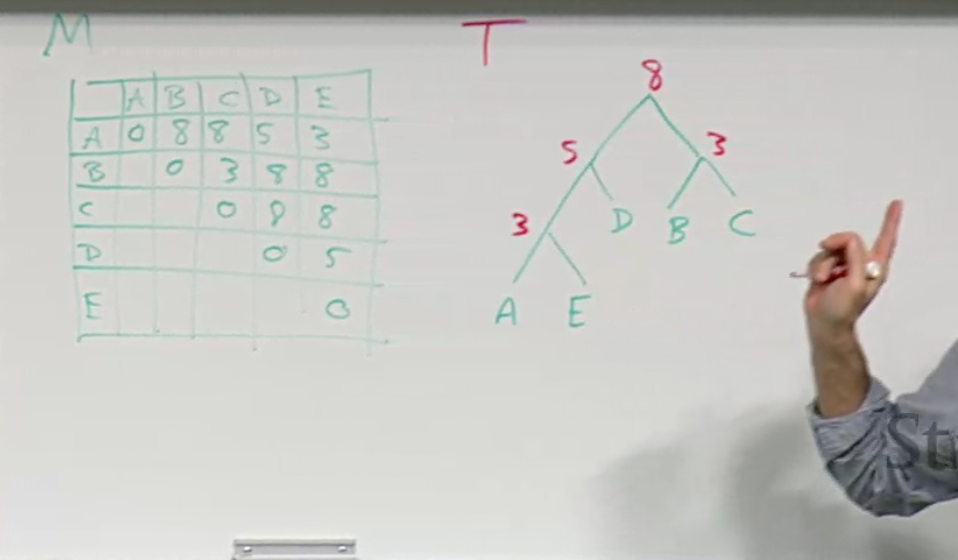 M
T
A B C D E
A 0 8 8 5 3
B 0 3 8 8
C 0 8 8
D 0 5
E 0
8
5 3
3 D B C
A E
St